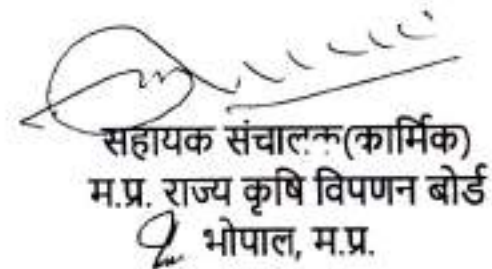 सहायक संचालक(कार्मिक)
म.प्र. राज्य कृषि विपणन बोर्ड
भोपाल, म.प्र.